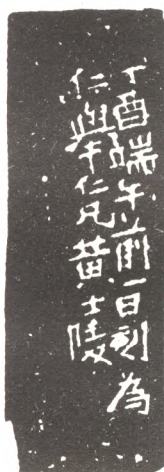 丁酉端午前一日刻為
仁舉仁兄黄士陵